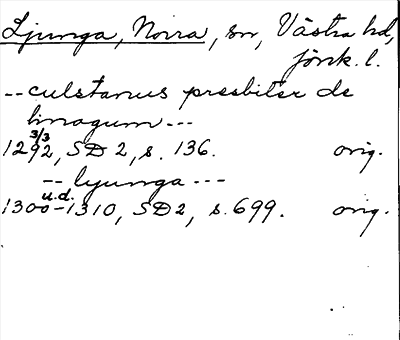 Ljunga, Norra, sn, Västra hd,
jönk. l.
-- culstanus presbiter de
linagum ---
3/3
1292, SD 2, s. 136. orig.
-- lyunga ---
u.d.
1300-1310, SD2, s. 699. orig.